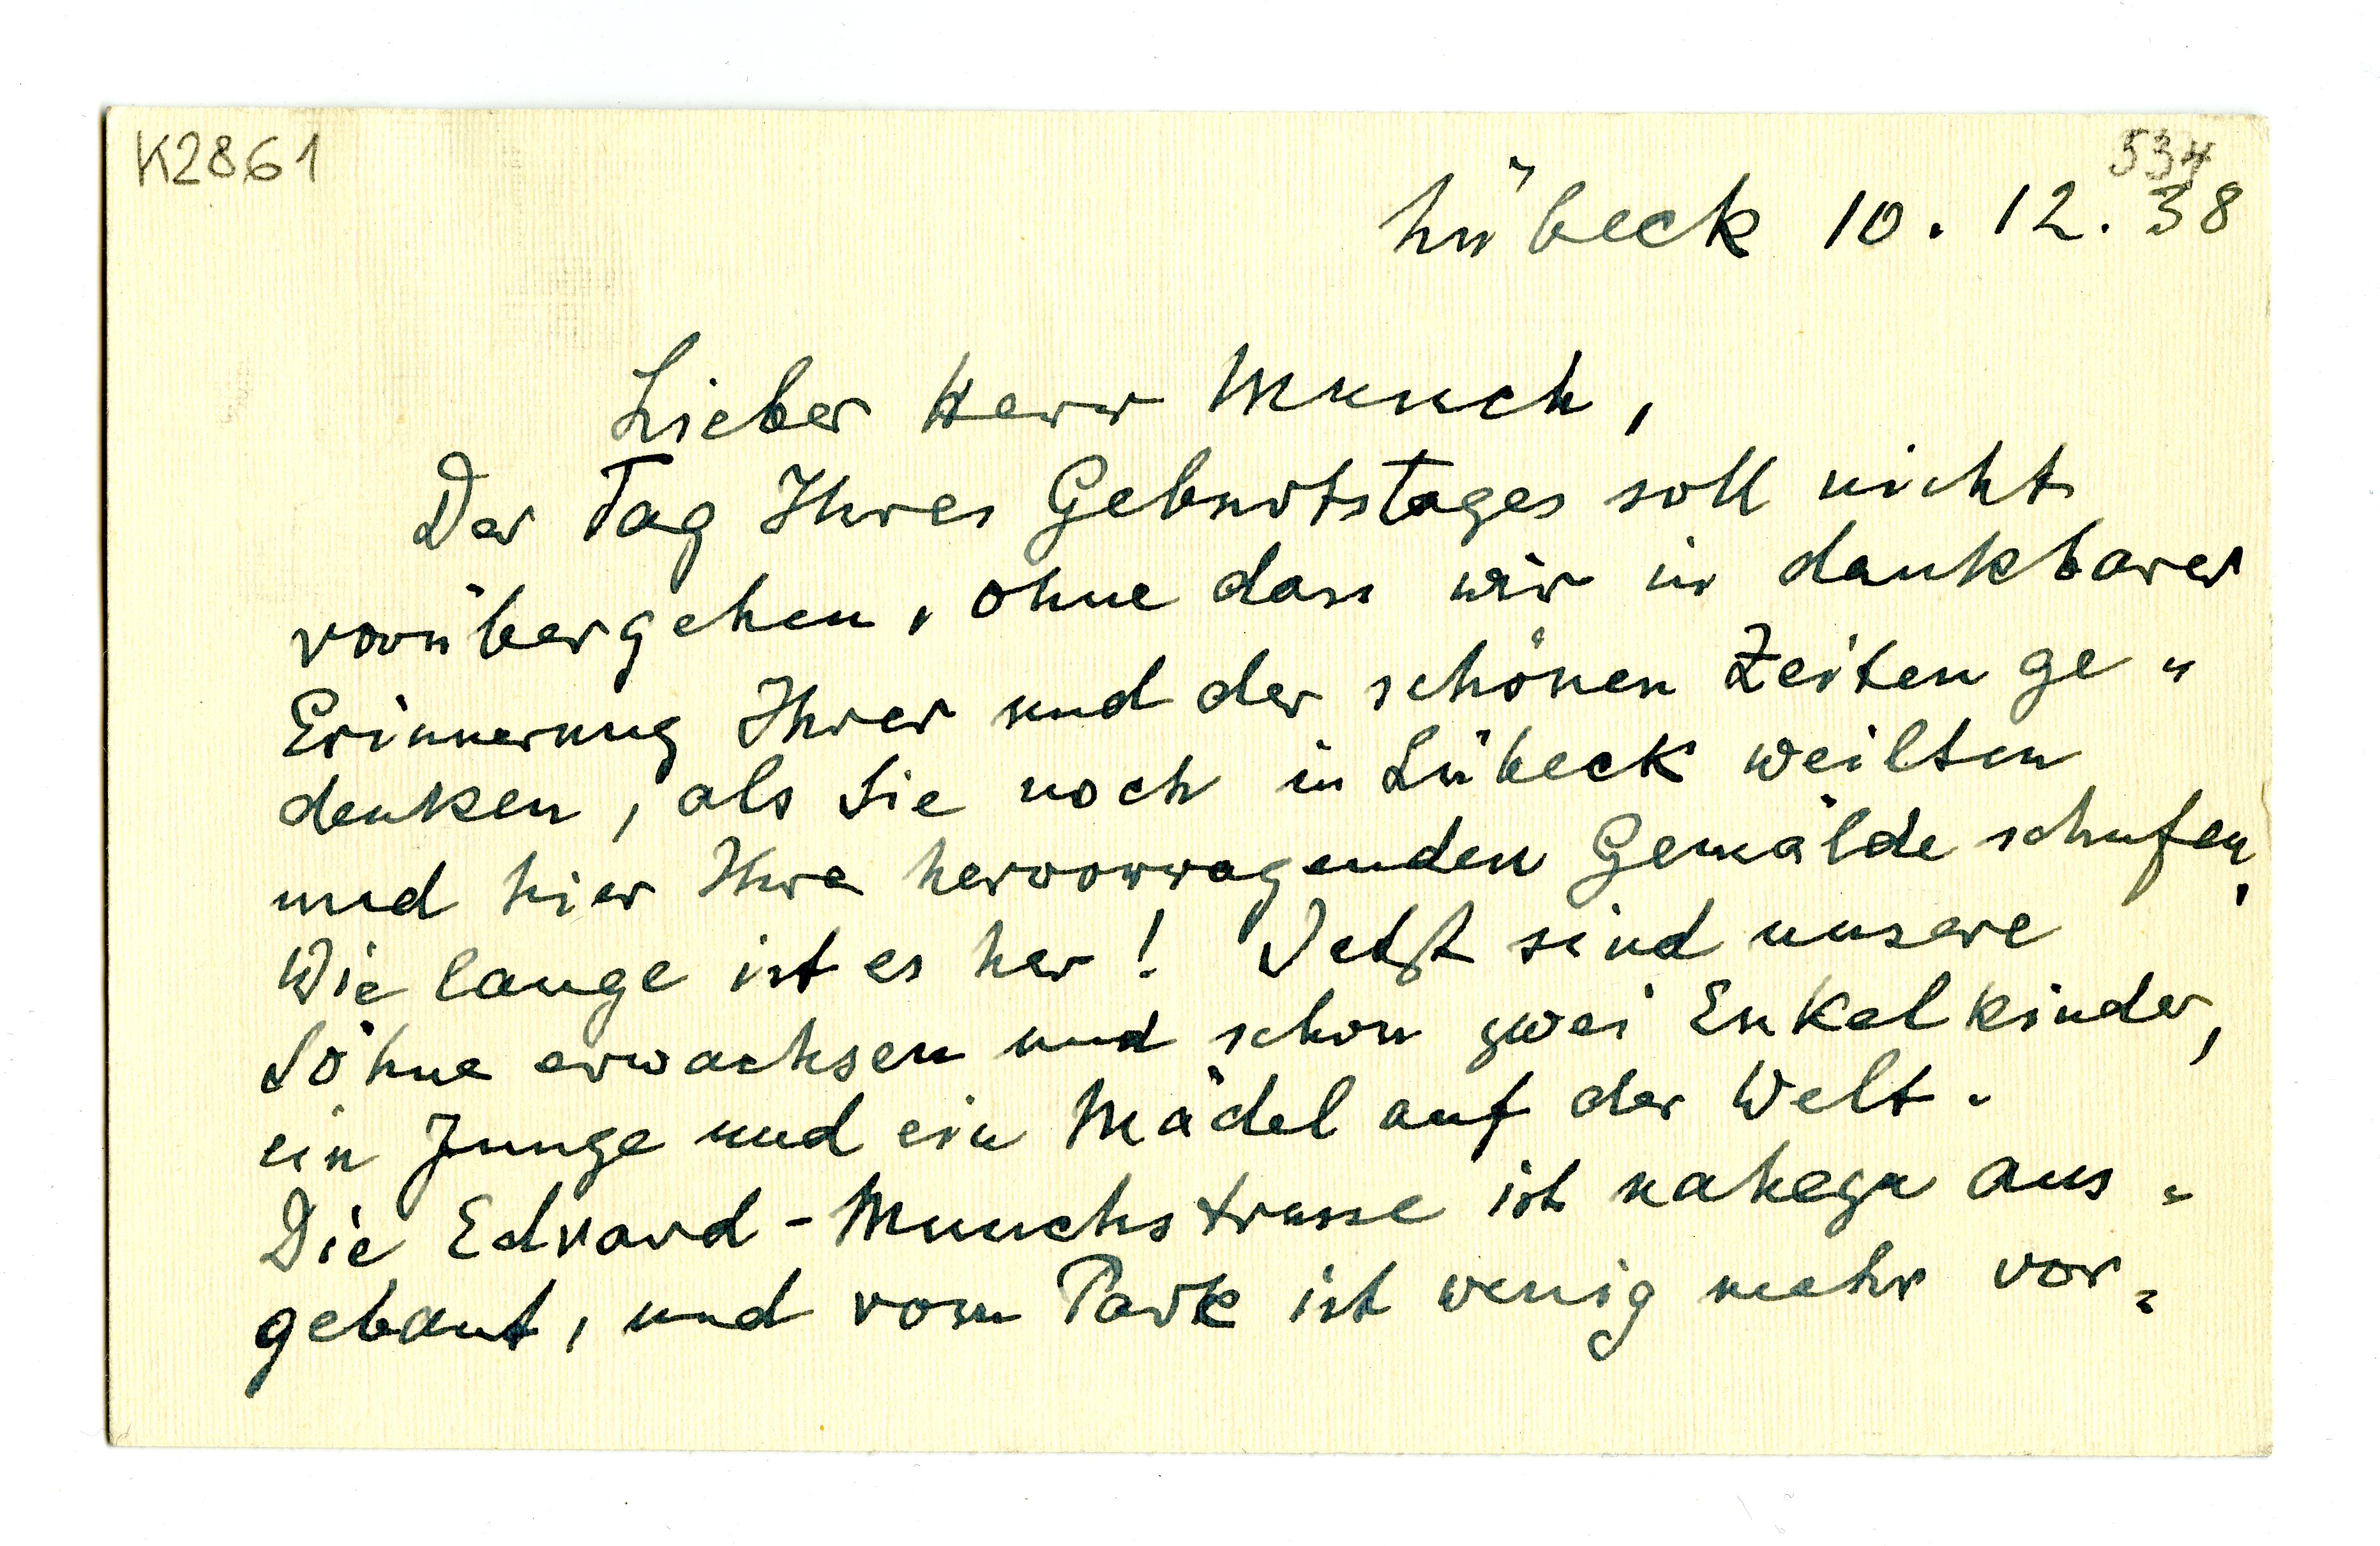 K2861
534
Lübeck 10.12.38
Lieber Herr Munch,
Der Tag Ihres Geburtstages soll nicht
vorübergehen, ohne dass wir in dankbarer
Erinnerung Ihrer und der schönen Zeiten ge=
denken, als Sie noch in Lübeck weilten
und hier Ihre hervorragenden Gemälde schufen,
Wie lange ist es her! Jetzt sind unsere
Söhne erwachsen und schon zwei Enkelkinder,
ein Junge und ein Mädel auf der Welt.
Die Edvard-Munchstrasse ist nahezu aus=
gebaut, und vom Park ist wenig mehr vor=